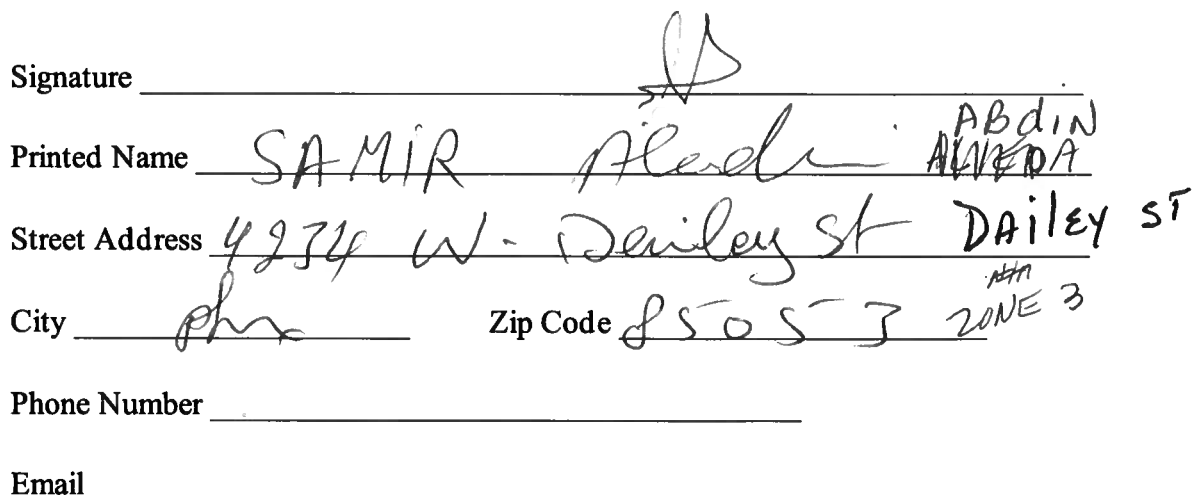 Signature
Printed Name SAMIR Abdin ABdiN
Street Address 4234 W. Dailey St DAilEY ST
City phx Zip Code 85053 ZONE 3
Phone Number
Email